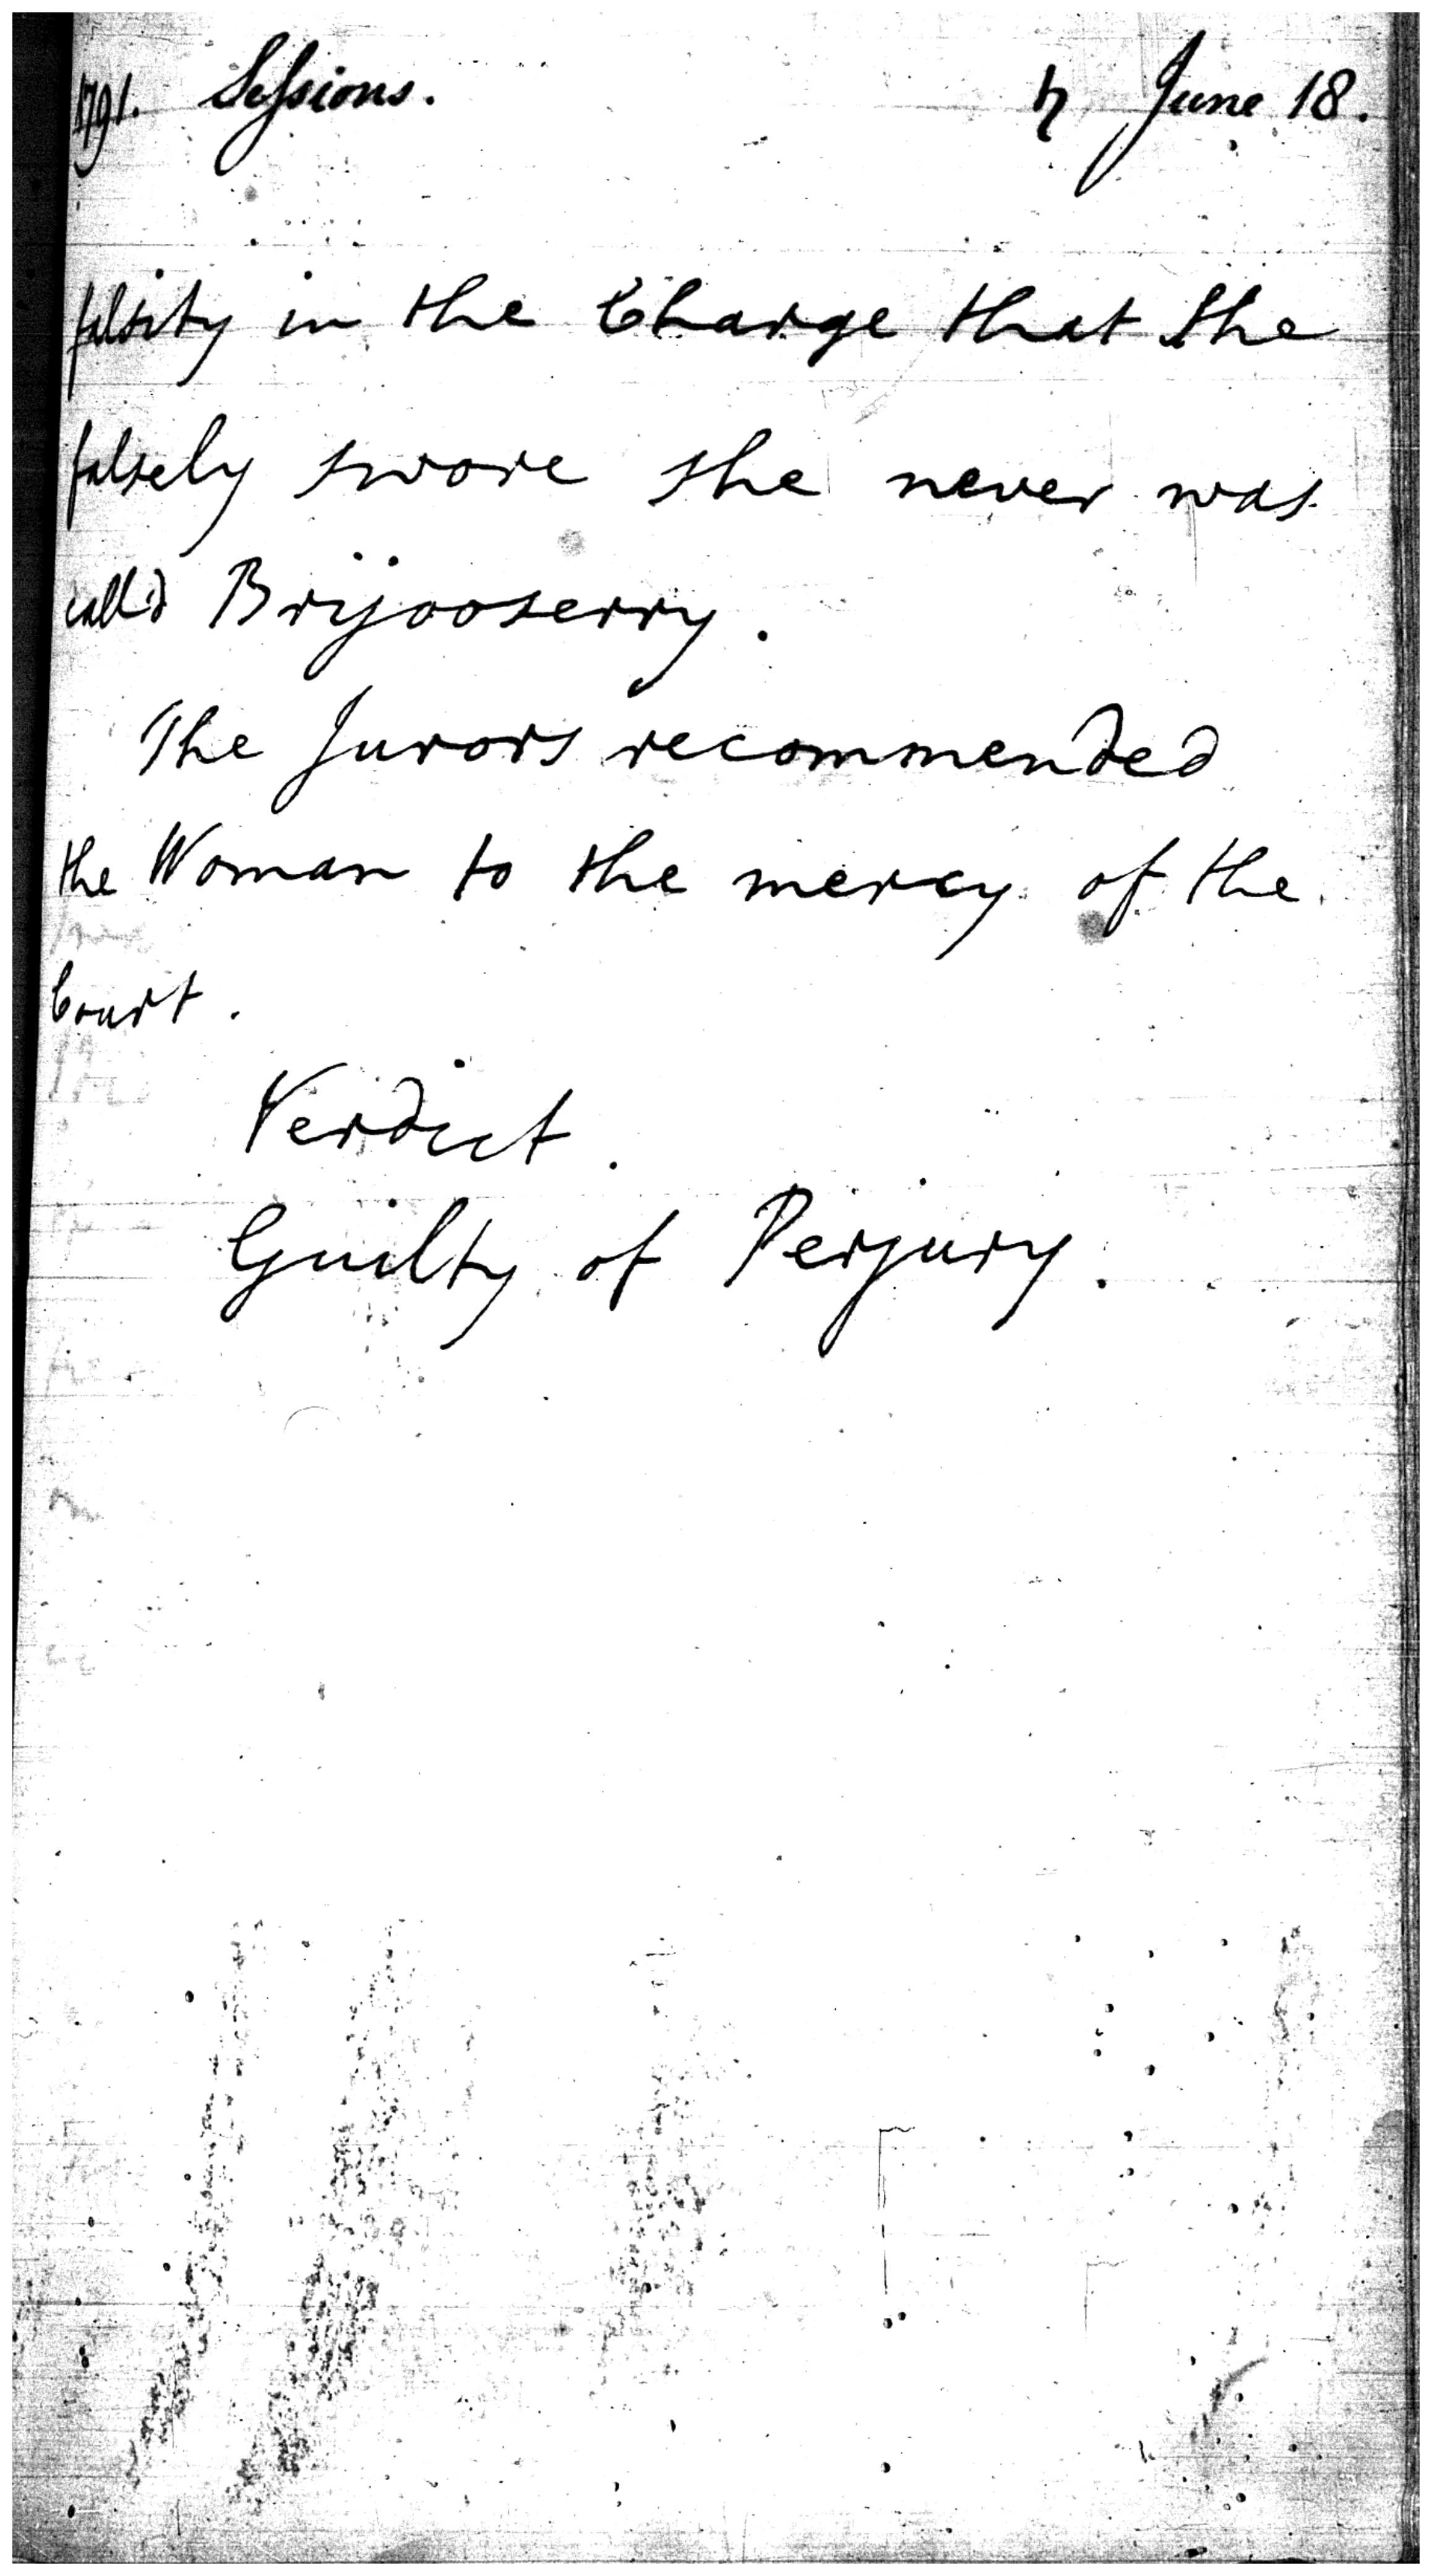 1791. Sessions. ♄ June 18.
falsity in the Charge that She
falsely swore she never was
call'd Brijooserry.
The Jurors recommended
the Woman to the mercy of the
Court.
Verdict.
Guilty of Perjury.